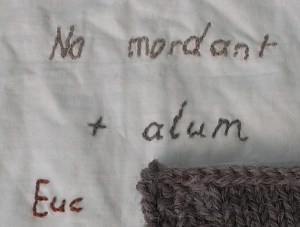 No mordant
+ alum
Euc